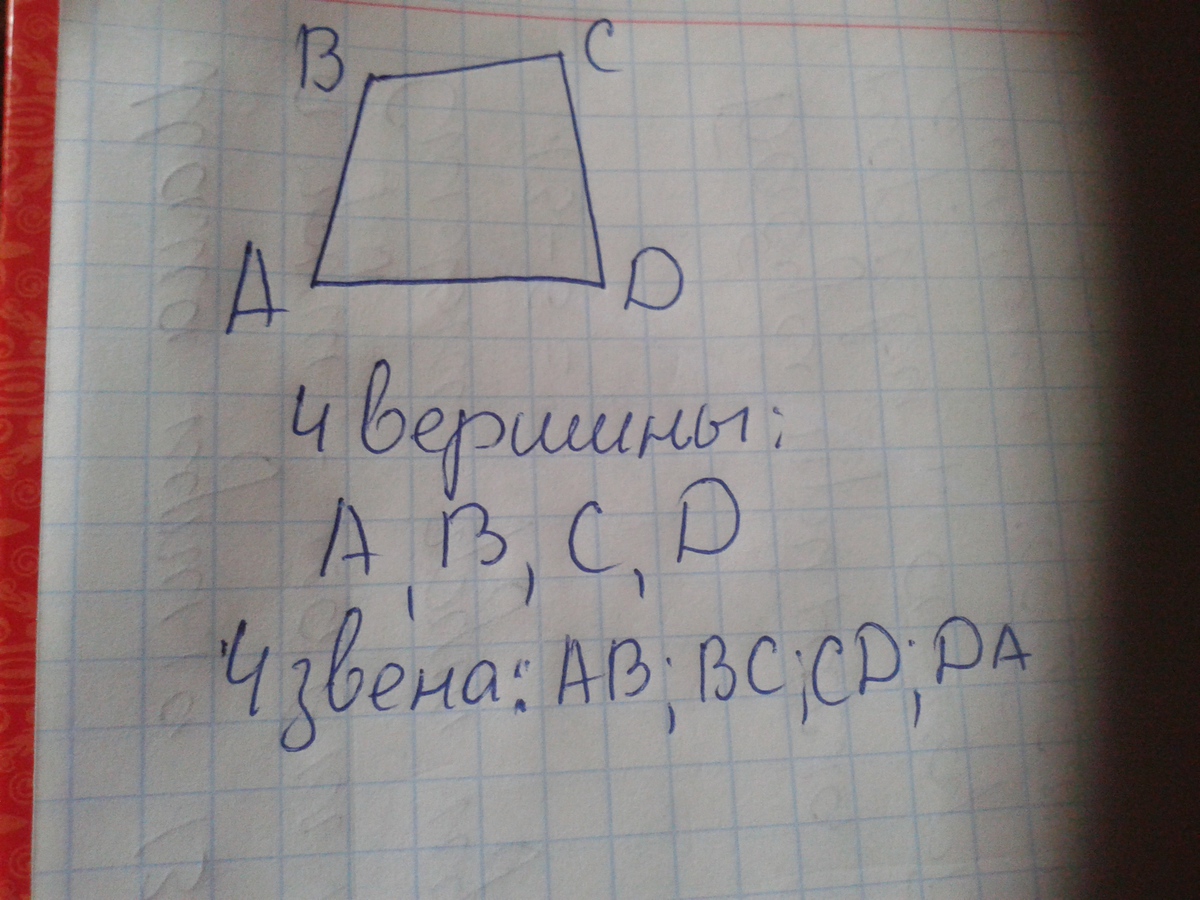 B C
A D
4 вершины:
A, B, C, D
4 звена: AB; BC; CD; DA